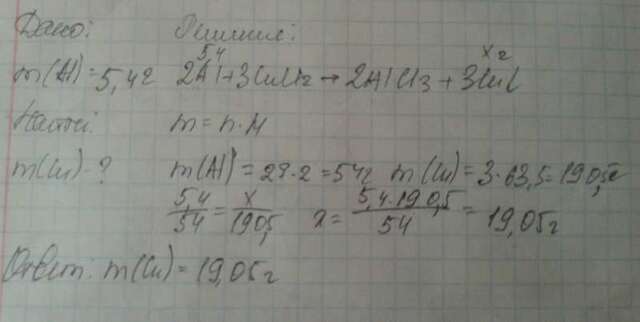 Дано: Решение:
5,4 x г
m(Al) = 5,4г 2Al + 3CuCl2 → 2AlCl3 + 3Cu
Найти: m = n · M
m(Cu) - ? m(Al) = 27·2 = 54г m(Cu) = 3·63,5 = 190,5г
5,4/54 = x/190,5 x = 5,4·190,5/54 = 19,05г
Ответ: m(Cu) = 19,05г